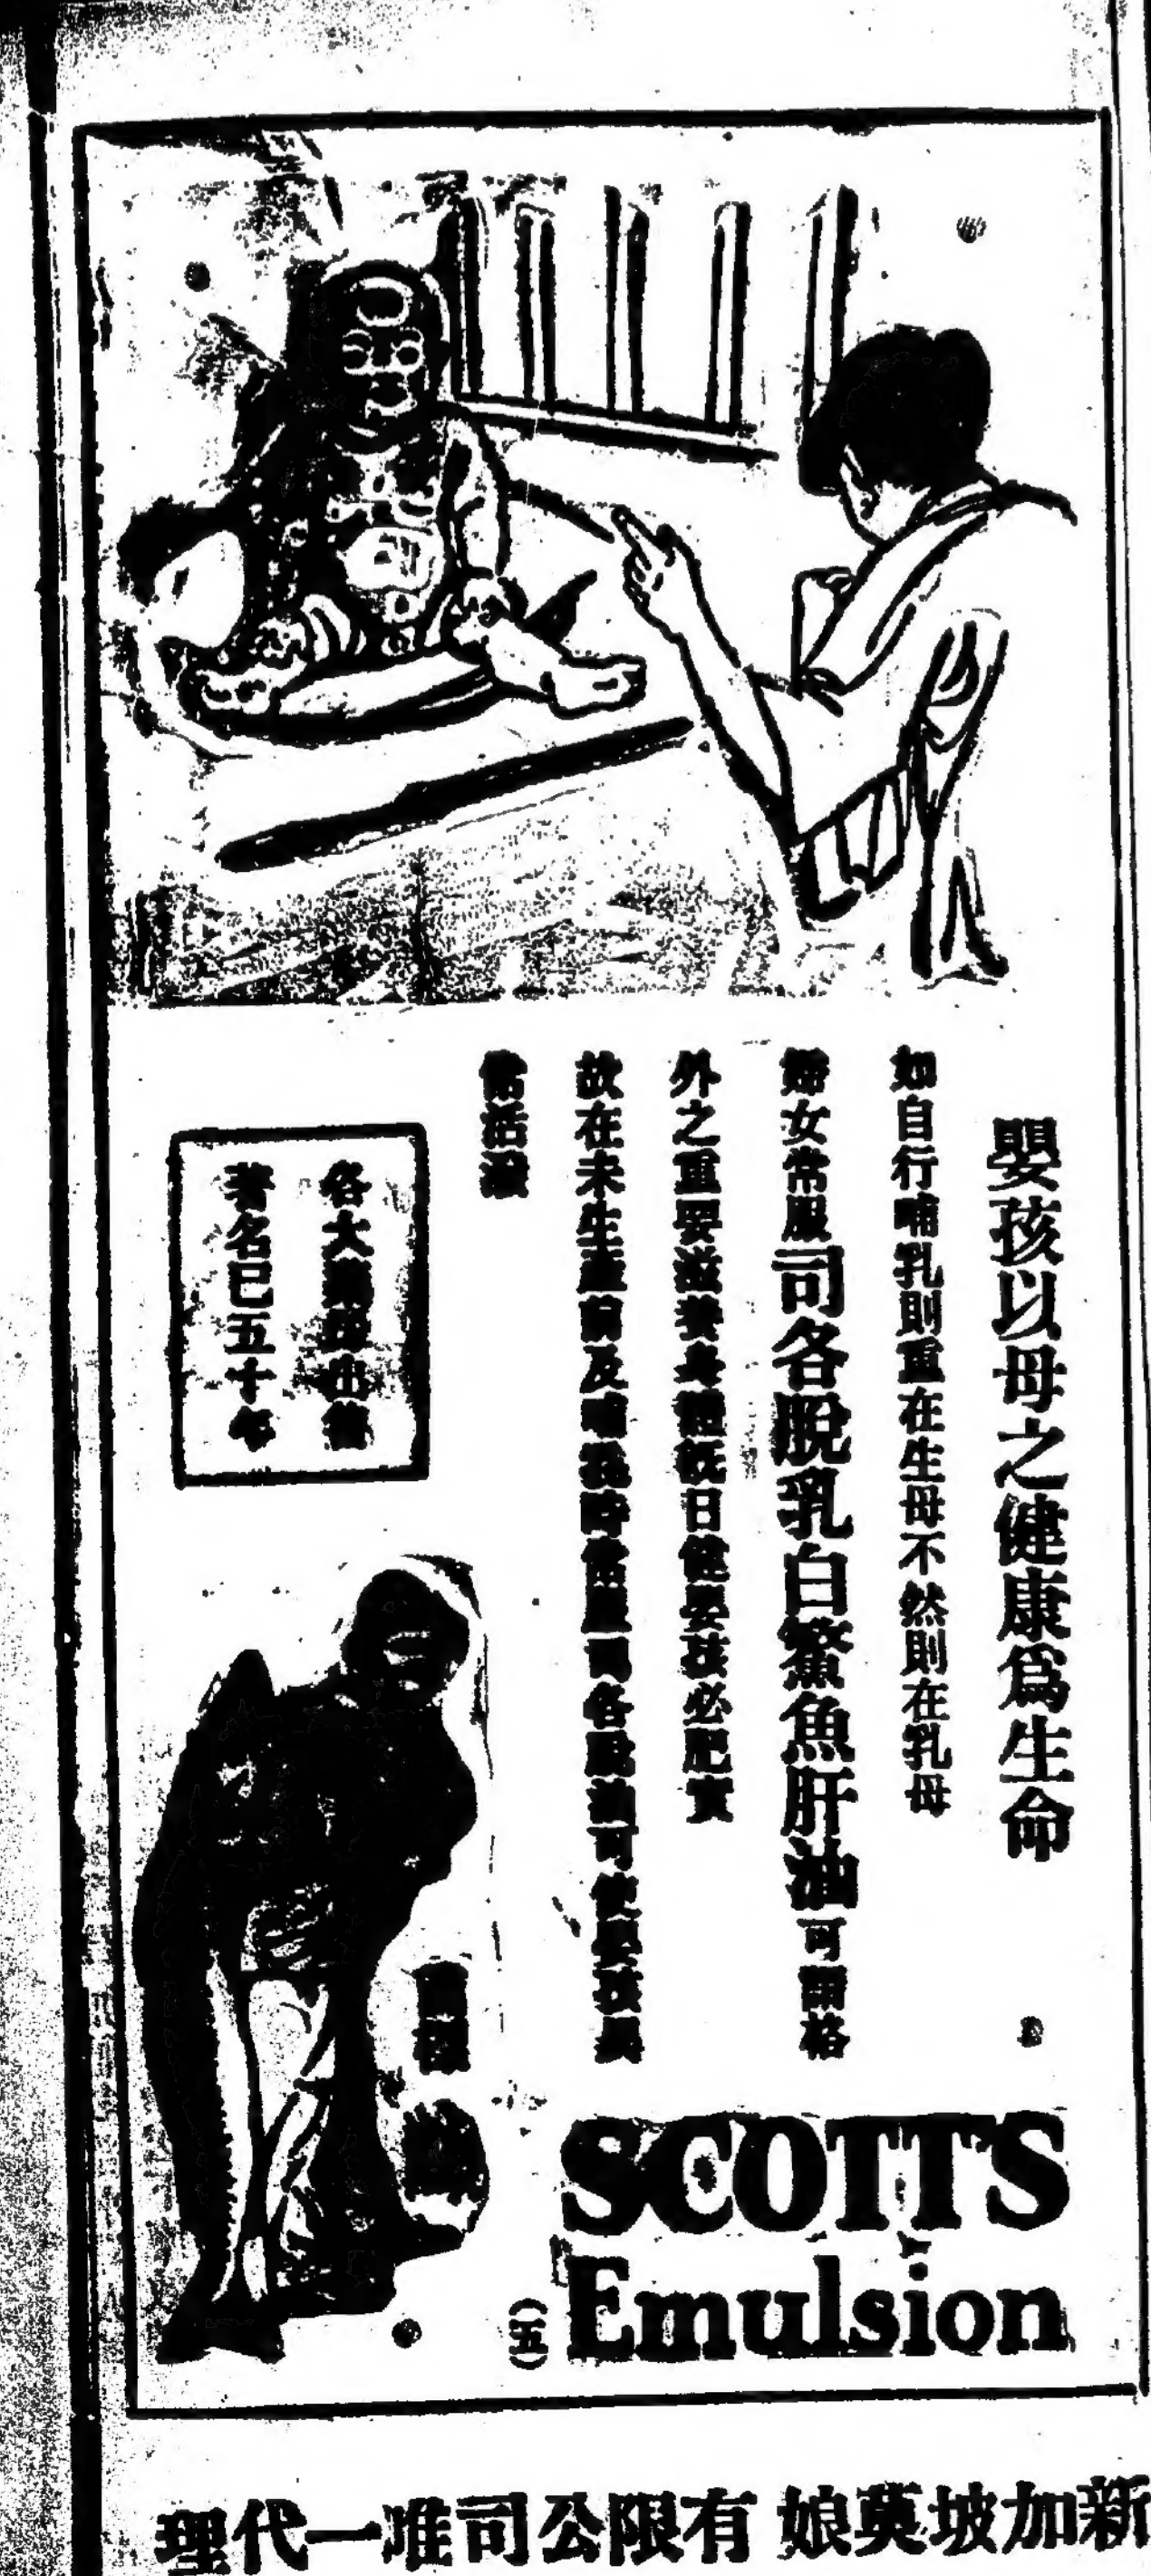 嬰孩以母之健康爲生命
如自行哺乳則重在生母不然則在乳母
婦女常服司各脫乳白鰵魚肝油可謂格
外之重要滋養身體旣日健嬰孩必肥實
故在未生產前及哺孩時常服司各脫油可使嬰孩異
常活潑
各大藥房出售
著名已五十年
商標
SCOTT'S
Emulsion
(五)
新加坡莫娘有限公司唯一代理